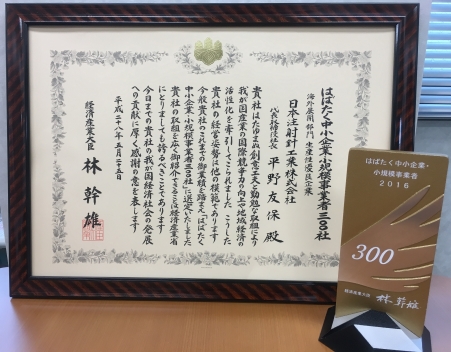 はばたく中小企業・小規模事業者三〇〇社
海外展開部門 生産性向上企業
日本注射針工業株式会社
代表取締役社長 平野友保 殿
貴社はたゆまぬ創意工夫と勤勉な取組により
我が国産業の国際競争力の向上や地域経済の
活性化を牽引してこられました こうした
貴社の経営姿勢は他の模範であります
今般貴社のこれまでの御業績を踏まえ「はばたく
中小企業・小規模事業者三〇〇社」に選定いたしました
貴社の取組を広く御紹介できることは経済産業省
にとりましても誇るべきことであります
今日までの貴社の我が国経済社会の発展
への貢献に厚く感謝の意を表します
平成二十八年五月二十五日
経済産業大臣 林 幹雄
はばたく中小企業・
小規模事業者
2016
300
経済産業大臣 林 幹雄